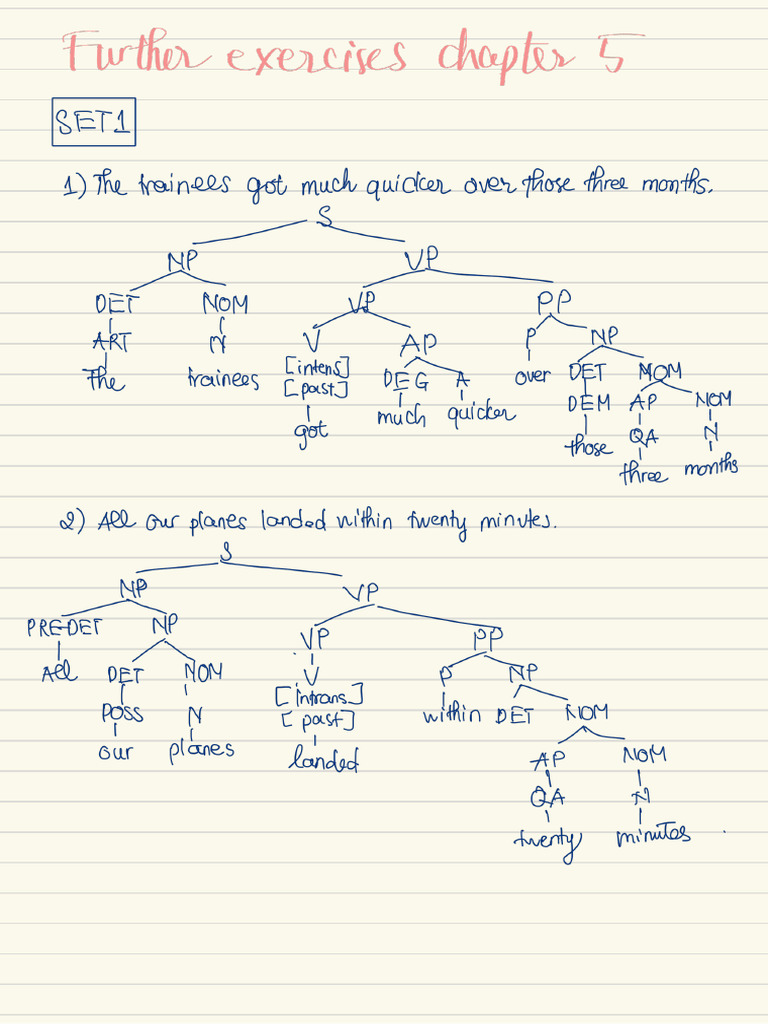 Further exercises chapter 5
SET1
1) The trainees got much quicker over those three months.
S
NP VP
DET NOM VP PP
ART N V AP P NP
The trainees [intens] DEG A over DET NOM
[past] much quicker DEM AP NOM
got those QA N
three months
2) All our planes landed within twenty minutes.
S
NP VP
PRE-DET NP VP PP
All DET NOM V P NP
POSS N [intrans] within DET NOM
our planes [past] AP NOM
landed QA N
twenty minutes